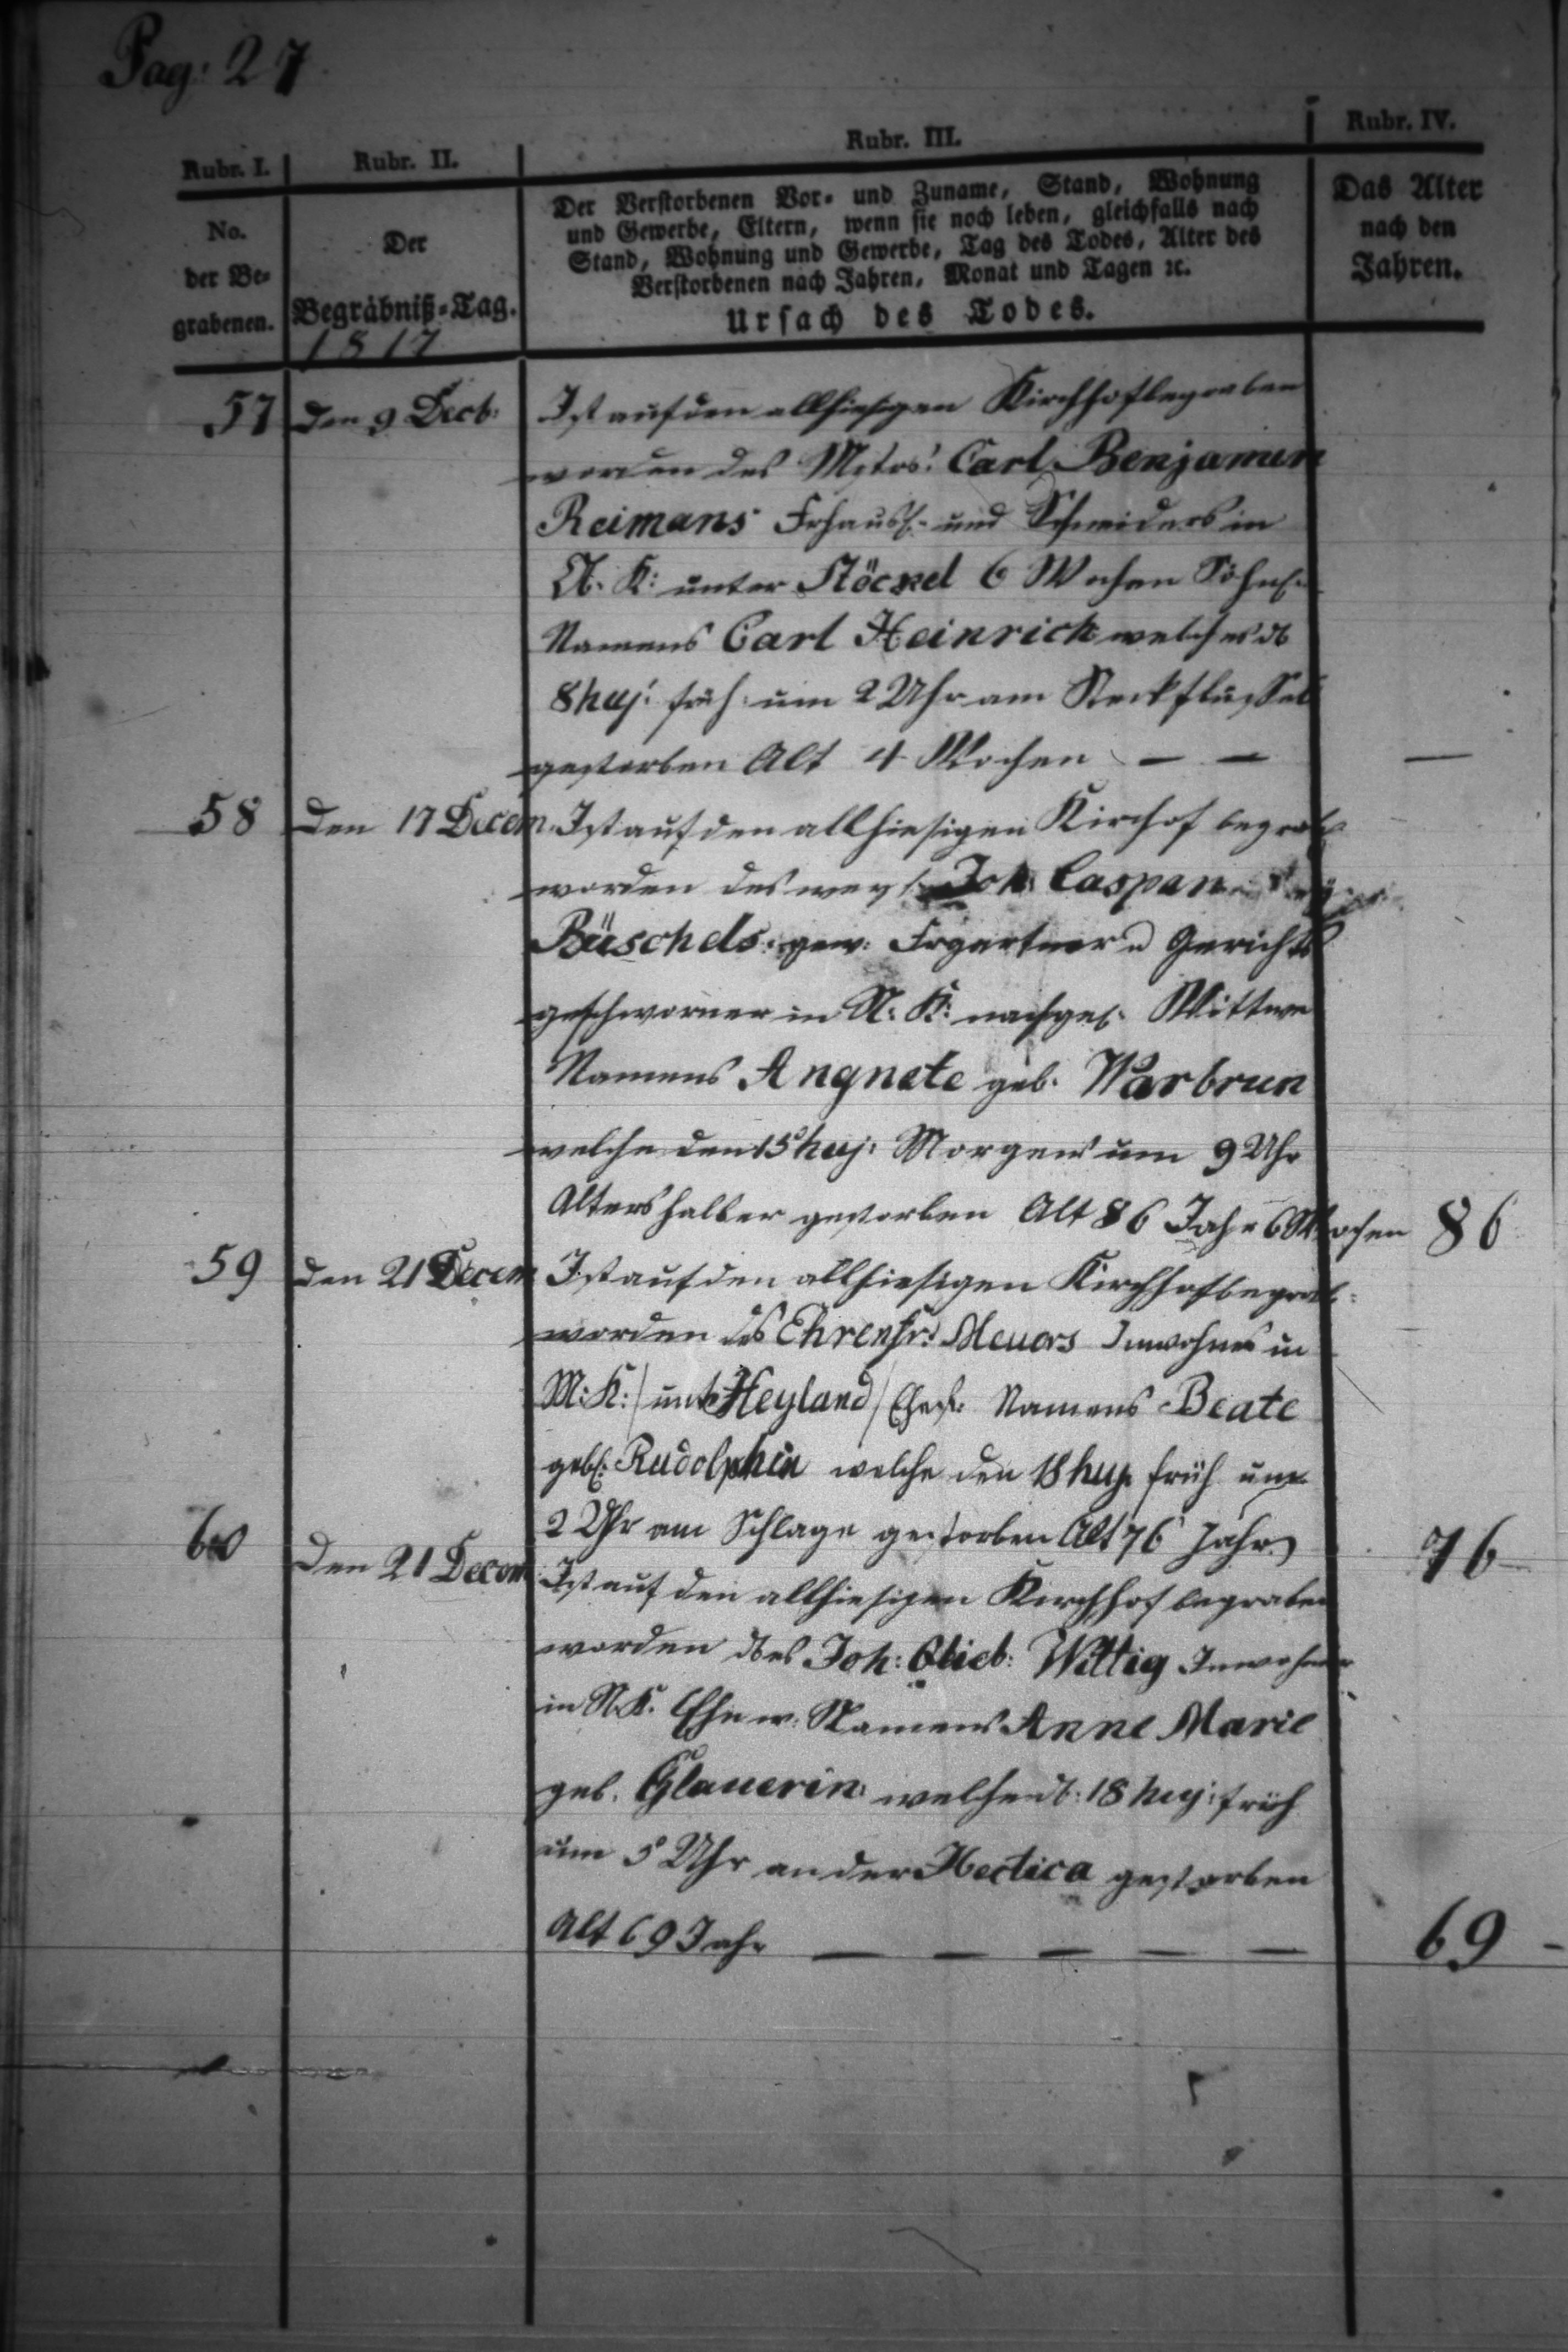 Pag: 27
Rubr. I. Rubr. II. Rubr. III. Rubr. IV.
No.
der Be-
grabenen.
Der
Begräbniß-Tag.
1817
Der Verstorbenen Vor- und Zuname, Stand, Wohnung
und Gewerbe, Eltern, wenn sie noch leben, gleichfalls nach
Stand, Wohnung und Gewerbe, Tag des Todes, Alter des
Verstorbenen nach Jahren, Monat und Tagen ꝛc.
Ursach des Todes.
Das Alter
nach den
Jahren.
57 den 9 Decb: Ist auf den allhiesigen Kirchhof begraben
worden des Mstrs: Carl Benjamin
Reimans Frhausl. und Schneiders in
N. K: unter Stöckel 6 Wochen Söhnl.
Namens Carl Heinrich welches d
8 huj: früh um 2 Uhr am Steckflusse
gestorben Alt 4 Wochen — — —
58 den 17 Decem. Ist auf den allhiesigen Kirchof begrab
worden des weyl. Joh. Caspar
Büschels gew. Frgartner u Gerichts
geschworner in N: K: nachgel. Wittwe
Namens Angnete geb. Warbrun
welche den 15 huj: Morgens um 9 Uhr
Altershalber gestorben Alt 86 Jahr 6 Wochen 86
59 den 21 Decem Ist auf den allhiesigen Kirchhof begrab:
worden des Ehrenfr: Meuers Inwohners in
M: K: / unt Heyland / Ehefr: Namens Beate
geb: Rudolphin welche den 18 huj. früh um
2 Uhr am Schlage gestorben Alt 76 Jahr 76
60 den 21 Decem Ist auf den allhiesigen Kirchhof begraben
worden des Joh: Glieb: Wittig Inwohner
in N. K. Ehew: Namens Anne Marie
geb. Glauerin welche d: 18 huj: früh
um 5 Uhr an der Hectica gestorben
Alt 69 Jahr — — — — — 69 -